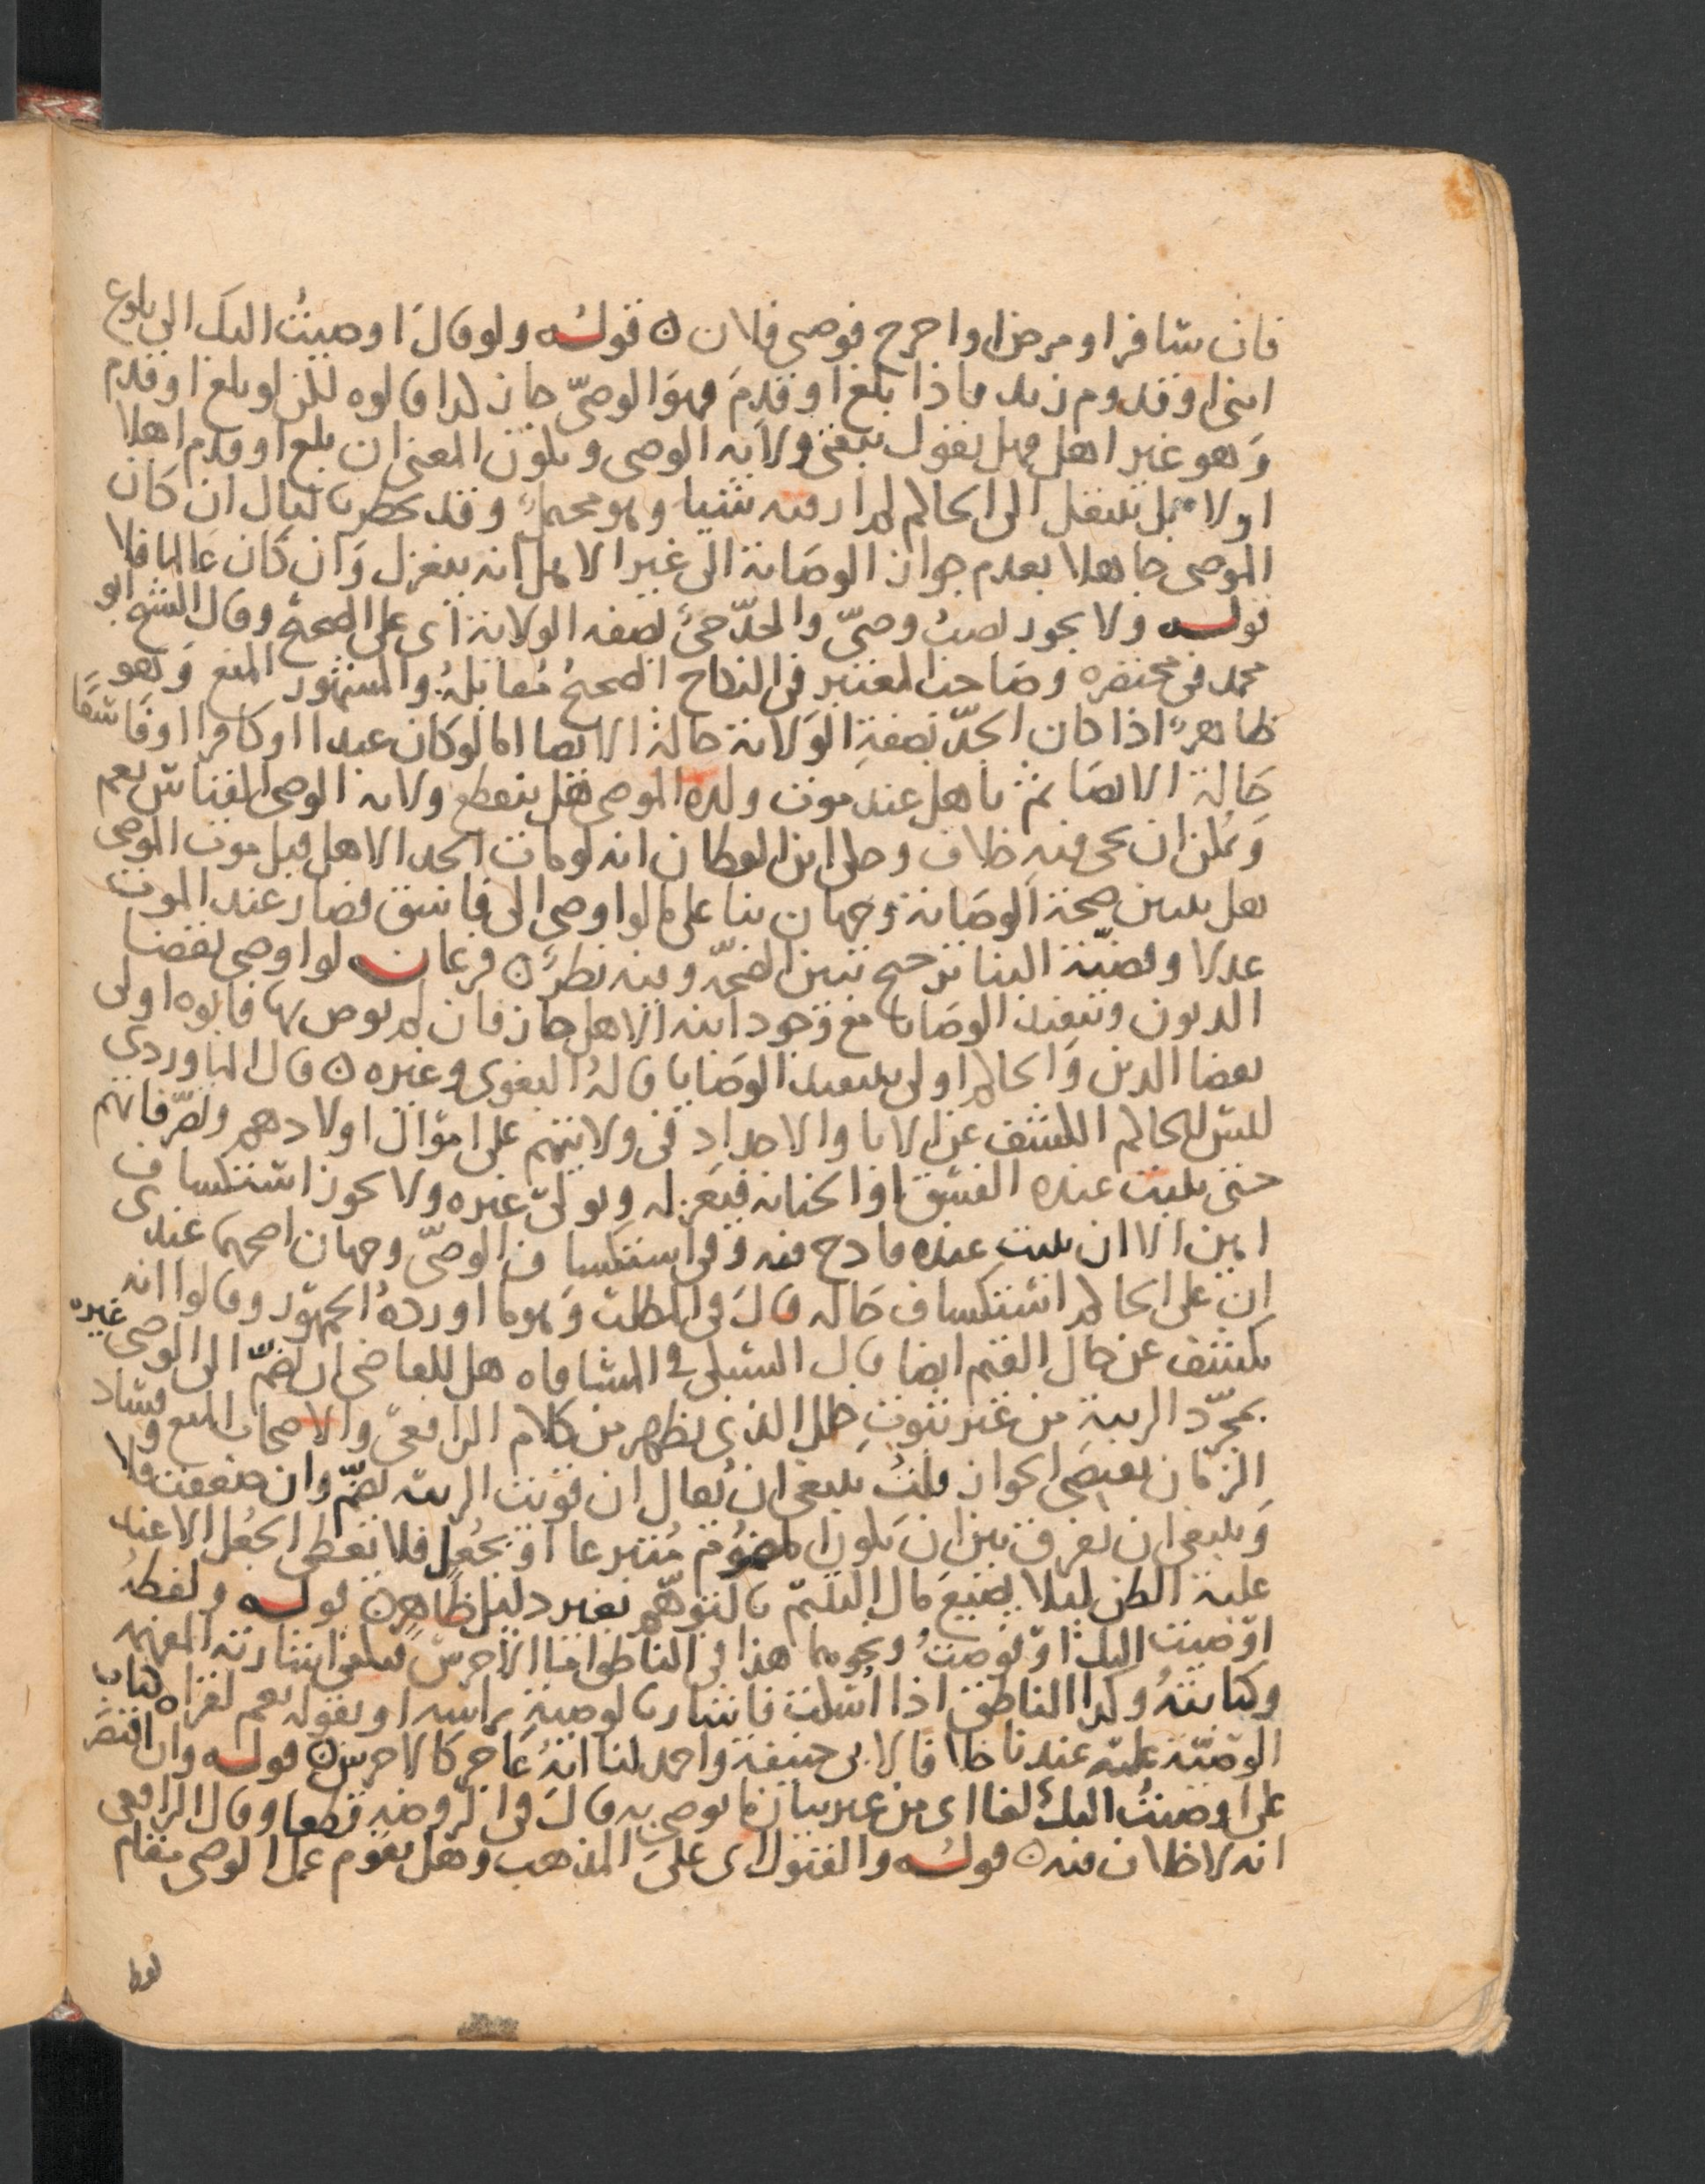 فان سافر او مرض او اخرج فوصى فلان ه قوله ولو قال اوصيت اليك الى بلوغ
ابنى او قدوم زيد فاذا بلغ او قدم فهو الوصى جاز كذا قالوه لكن لو بلغ او قدم
وهو غير اهل فهل نقول تبقى ولاية الوصى ويكون المعنى ان بلغ او قدم اهلا
او لا بل ينتقل الى الحاكم لم ار فيه شيا وهو محتمل وقد يخطر بالبال ان كان
الموصى جاهلا بعدم جواز الوصاية الى غير الاهل انه ينعزل وان كان عالما فلا
قوله ولا يجوز نصب وصى والجد حى بصفه الولاية اى على الصحيح وقال الشيخ ابو
محمد فى مختصره وصاحب المعتبر فى النكاح الصحيح مقابله والمشهور المنع وهو
ظاهر اذا كان الجد بصفة الولاية حالة الايصا اما لو كان عبدا او كافرا او فاسقا
حالة الايصا ثم تاهل عند موت ولده الموصى فهل ينقطع ولايه الوصى القياس نعم
ويمكن ان يجى فيه خلاف وحكى ابن القطان انه لو مات الجد الاهل قبل موت الموصى
هل يتبين صحة الوصاية وجهان بنا على ما لو اوصى الى فاسق فصار عند الموت
عدلا وقضية البنا ترجيح تبين الصحة وفيه نظر ه فرعان لو اوصى بقضا
الديون وتنفيذ الوصايا مع وجود ابيه الاهل جاز فان لم يوص بها فابوه اولى
بقضا الدين والحاكم اولى بتنفيذ الوصايا قاله البغوى وغيره ه قال الماوردى
ليس للحاكم الكشف عن الابا والاجداد فى ولايتهم على اموال اولادهم وتصرفاتهم
حتى يثبت عنده الفسق او الخيانة فيعزله ويولى غيره ولا يجوز استكشاف
امين الا ان يثبت عنده قادح فيه وفى استكشاف الوصى وجهان اصحهما عندى
ان على الحاكم استكشاف حاله قال فى المطلب وهو ما اورده الجمهور وقالوا انه
يكشف عن حال القيم ايضا قال السبكى فى المساقاه هل للقاضى ان يضم الى الوصى غيره
بمجرد الريبة من غير ثبوت خلل الذى يظهر من كلام الرافعى والاصحاب المنع وفساد
الزمان يقتضى الجواز قلت ينبغى ان يقال ان قويت الريبه يضم وان ضعفت فلا
وينبغى ان يفرق بين ان يكون المضموم متبرعا او بجعل فلا يعطى الجعل الا عند
غلبة الظن ليلا يضيع مال اليتيم بالتوهم بغير دليل ظاهر ه قوله ولفظه
اوصيت اليك او فوضت ونحوهما هذا فى الناطق اما الاخرس فيكفى اشارته المفهمه
وكتابته وكذا الناطق اذا اسكت فاشار بالوصية براسه او بقوله نعم لقراه كتاب
الوصية عليه عندنا خلافا لابى حنيفة واحمد لنا انه عاجز كالاخرس ه قوله وان اقتصر
على اوصيت اليك لغا اى من غير بيان ما يوصى به قال فى الروضه قطعا وقال الرافعى
انه لا خلاف فيه ه قوله والقبول اى على المذهب وهل يقوم عمل الوصى مقام